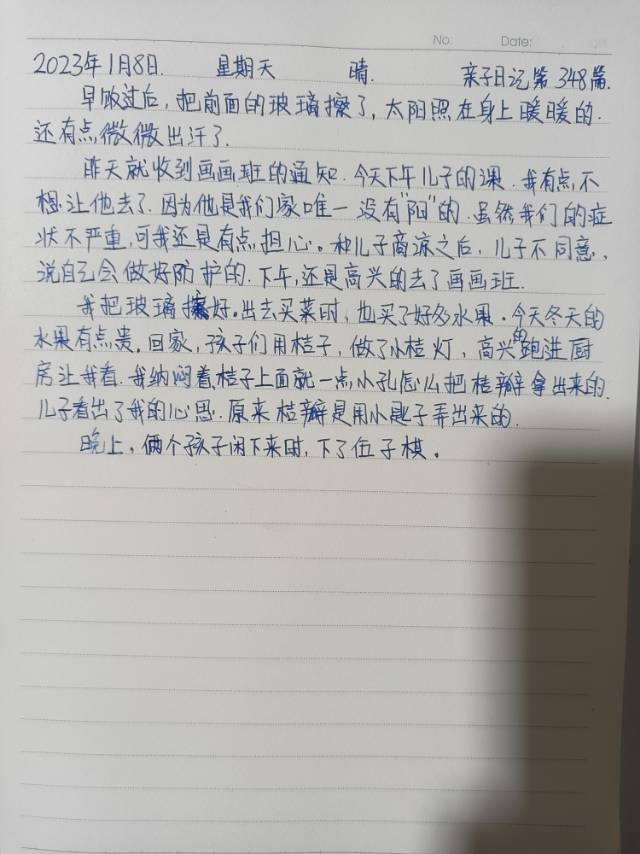 No:
Date:
2023年1月8日. 星期天 晴. 亲子日记第348篇.
早饭过后,把前面的玻璃擦了,太阳照在身上暖暖的.
还有点微微出汗了.
昨天就收到画画班的通知.今天下午儿子的课.我有点不
想让他去了.因为他是我们家唯一没有"阳"的.虽然我们的症
状不严重,可我还是有点担心。和儿子商谅之后,儿子不同意、
说自己会做好防护的.下午,还是高兴的去了画画班.
我把玻璃擦好。出去买菜时,也买了好多水果.今天冬天的
水果有点贵。回家,孩子们用桔子,做了小桔灯,高兴的跑进厨
房让我看.我纳闷着,桔子上面就一点小孔怎么把桔瓣拿出来的.
儿子看出了我的心思.原来桔瓣是用小匙子弄出来的.
晚上,俩个孩子闲下来时,下了五子棋。